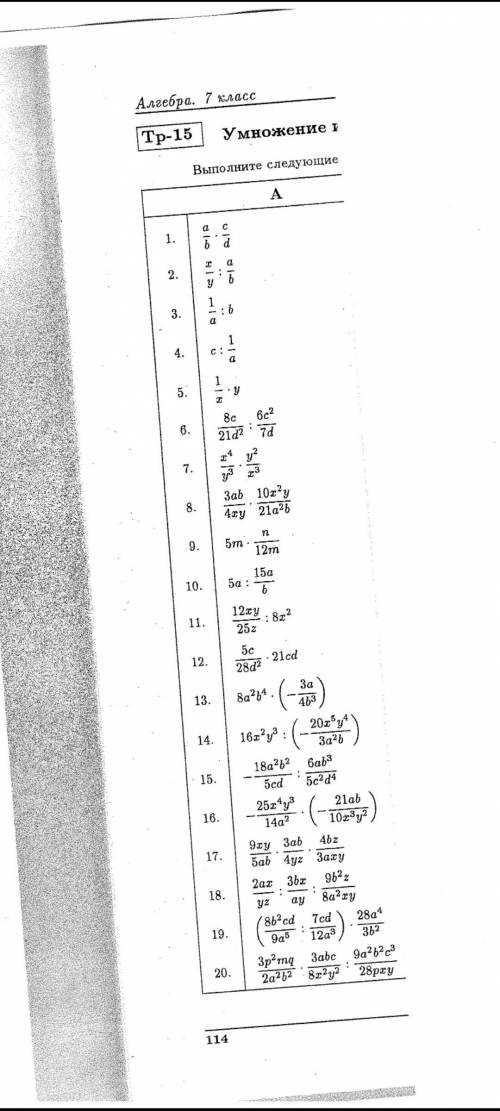 Алгебра. 7 класс
Тр-15 Умножение и
Выполните следующие
А
1. a/b · c/d
2. x/y : a/b
3. 1/a : b
4. c : 1/a
5. 1/x · y
6. 8c/21d² : 6c²/7d
7. x⁴/y³ · y²/x³
8. 3ab/4xy · 10x²y/21a²b
9. 5m · n/12m
10. 5a : 15a/b
11. 12xy/25z : 8x²
12. 5c/28d² · 21cd
13. 8a²b⁴ · (−3a/4b³)
14. 16x²y³ : (−20x⁵y⁴/3a²b)
15. −18a²b²/5cd : 6ab³/5c²d⁴
16. −25x⁴y³/14a² · (−21ab/10x³y²)
17. 9xy/5ab · 3ab/4yz · 4bz/3axy
18. 2ax/yz : 3bx/ay : 9b²z/8a²xy
19. (8b²cd/9a⁵ : 7cd/12a³) · 28a⁴/3b²
20. 3p²mq/2a²b² · 3abc/8x²y² : 9a²b²c³/28pxy
114